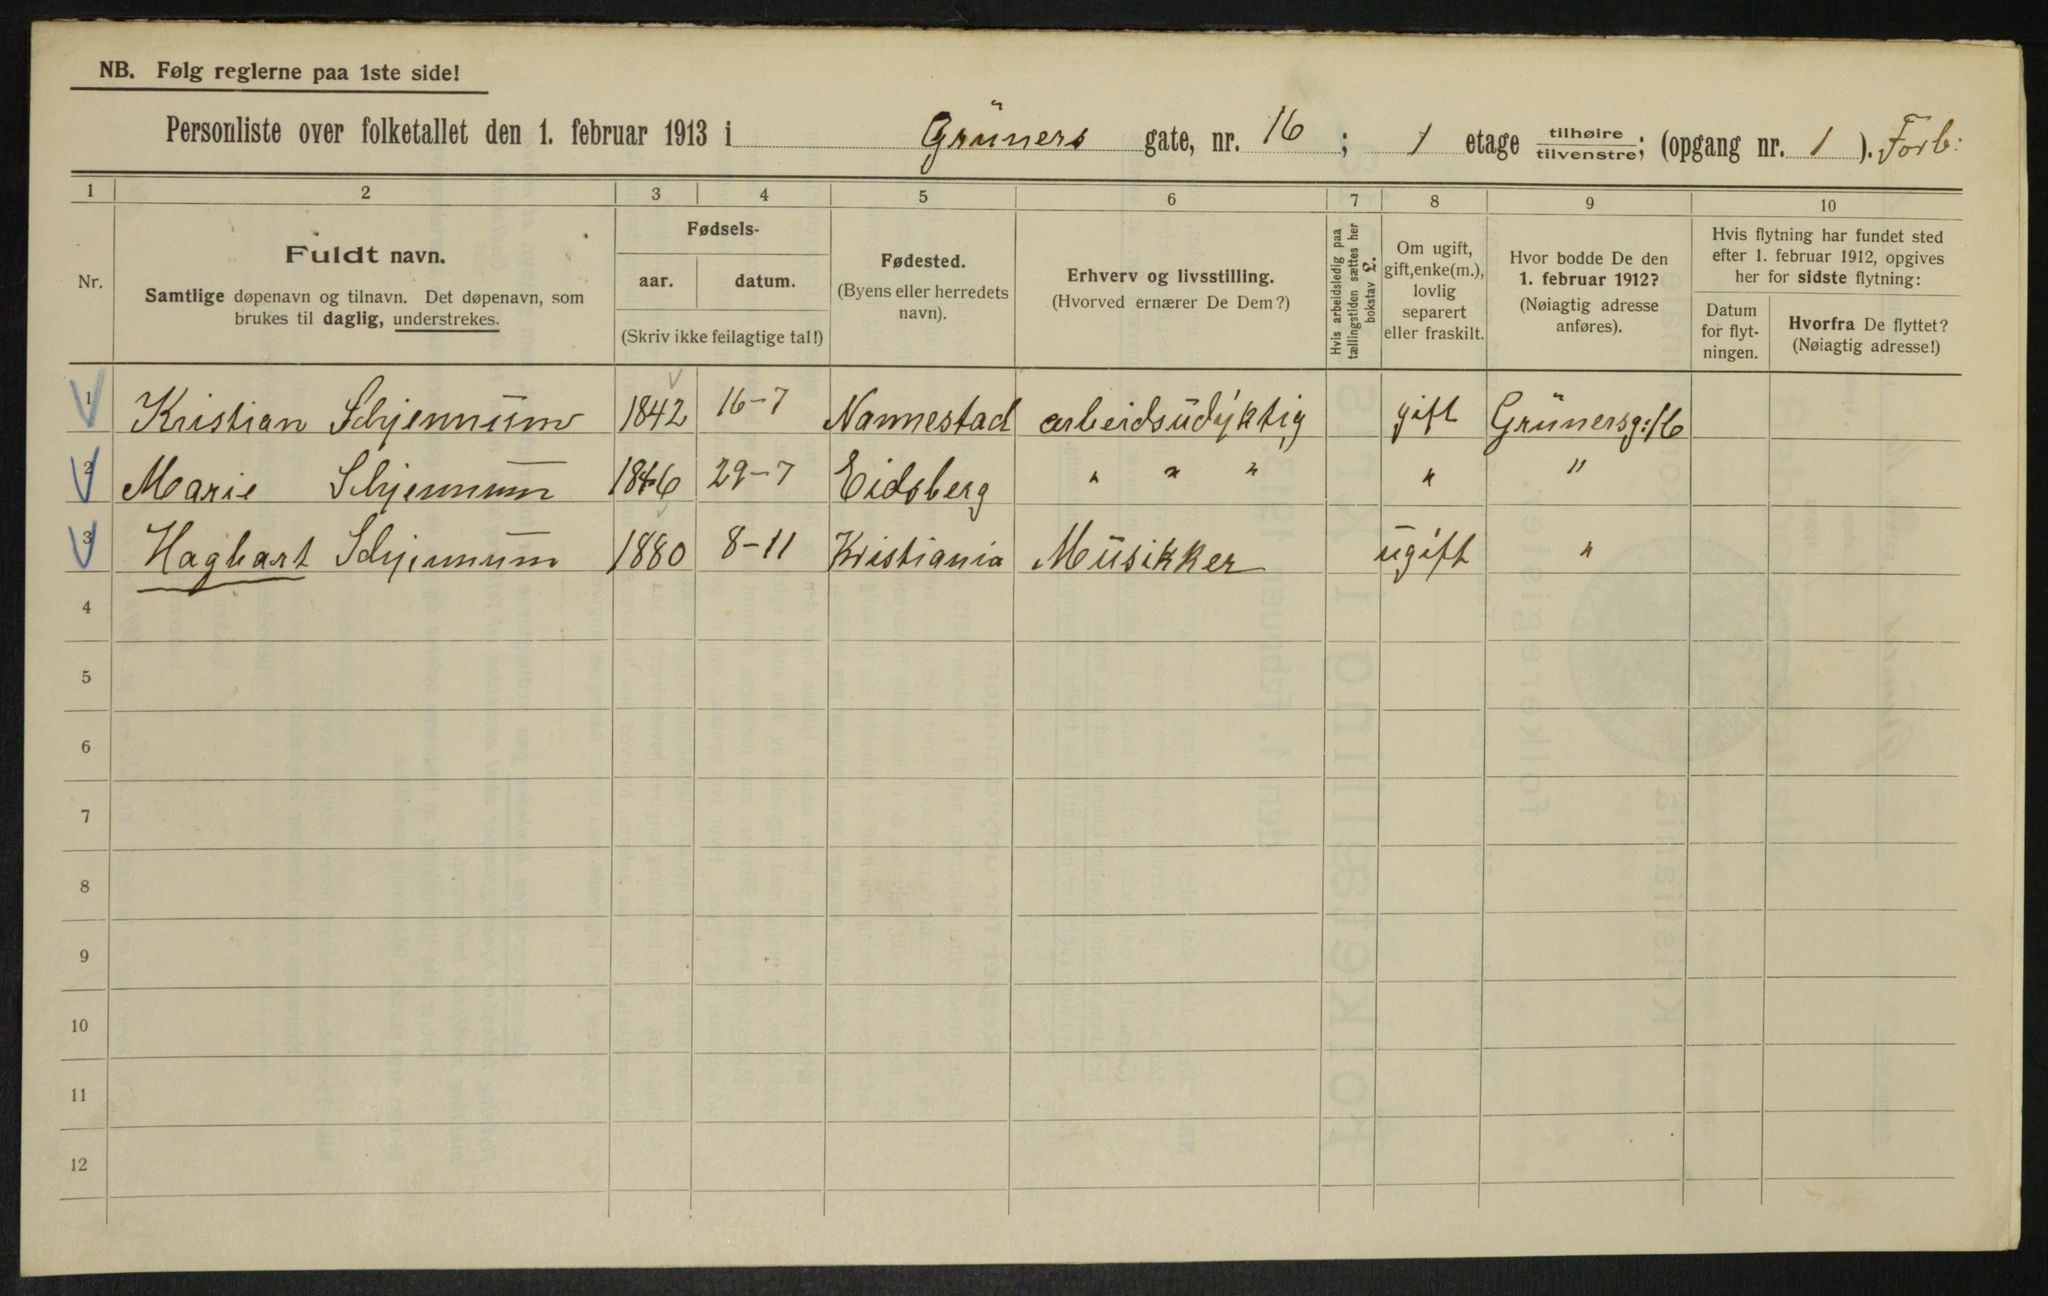 NB. Følg reglerne paa 1ste side!
Personliste over folketallet den 1. februar 1913 i Grüners gate, nr. 16 ; 1 etage tilhøire tilvenstre; (opgang nr. 1 ). Forb:
1 2 3 4 5 6 7 8 9 10
Nr.
Fuldt navn.
Samtlige døpenavn og tilnavn. Det døpenavn, som
brukes til daglig, understrekes.
Fødsels-
aar. datum.
(Skriv ikke feilagtige tal!)
Fødested.
(Byens eller herredets
navn).
Erhverv og livsstilling.
(Hvorved ernærer De Dem?)
Hvis arbeidsledig paa
tællingstiden sættes her
bokstav L.
Om ugift,
gift, enke(m.),
lovlig
separert
eller fraskilt.
Hvor bodde De den
1. februar 1912?
(Nøiagtig adresse
anføres).
Hvis flytning har fundet sted
efter 1. februar 1912, opgives
her for sidste flytning:
Datum
for flyt-
ningen.
Hvorfra De flyttet?
(Nøiagtig adresse!)
1 Kristian Schjennum 1842 16-7 Nannestad arbeidsudyktig gift Grünersg: 16
2 Marie Schjennum 1846 29-7 Eidsberg " " " " "
3 Hagbart Schjennum 1880 8-11 Kristiania Musikker ugift "
4
5
6
7
8
9
10
11
12